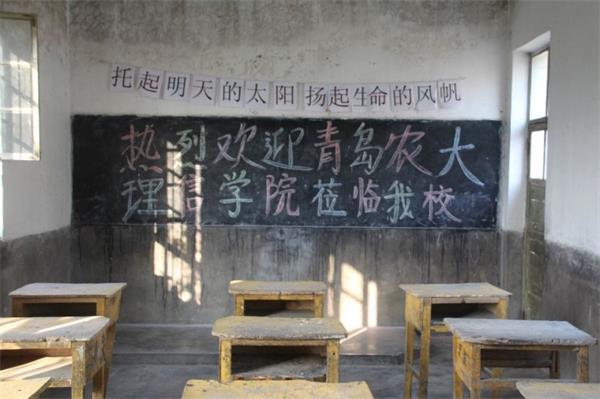 托起明天的太阳 扬起生命的风帆
热烈欢迎青岛农大
理信学院莅临我校